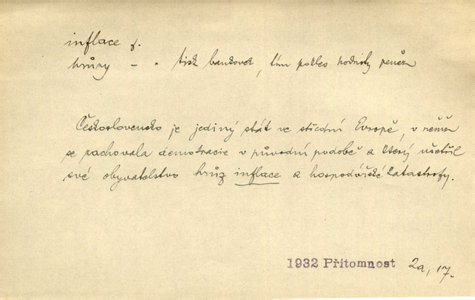 inflace f.
hrůzy – „ tisk bankovek, tím pokles hodnoty peněz
Československo je jediný stát ve střední Evropě, v němž
se zachovala demokracie v původní podobě a který ušetřil
své obyvatelstvo hrůz inflace a hospodářské katastrofy.
1932 Přítomnost 2a, 17.